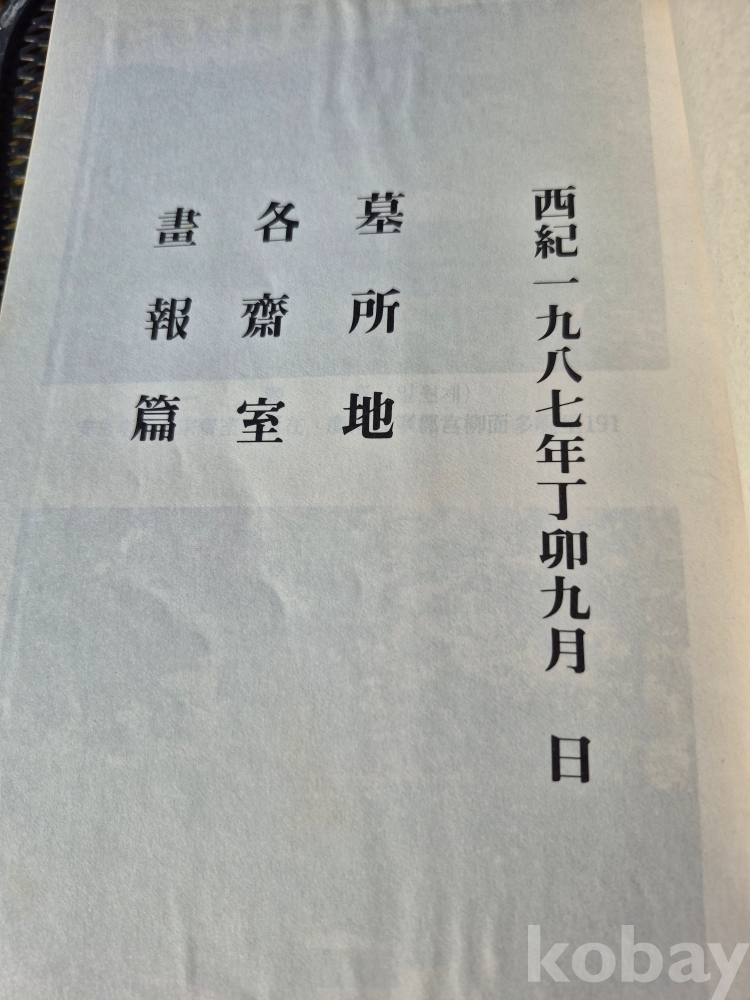 西紀一九八七年丁卯九月 日
墓所地
各齋室
畫報篇
kobay